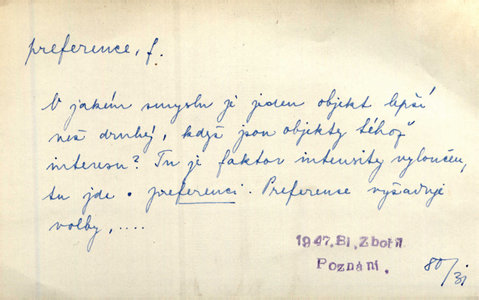 preference, f.
V jakém smyslu je jeden objekt lepší
než druhý, když jsou objekty téhož
interesu? Tu je faktor intensity vyloučen,
tu jde o preferenci. Preference vyžaduje
volby, ....
1947. Bl. Zbořil
Poznání.
80/31